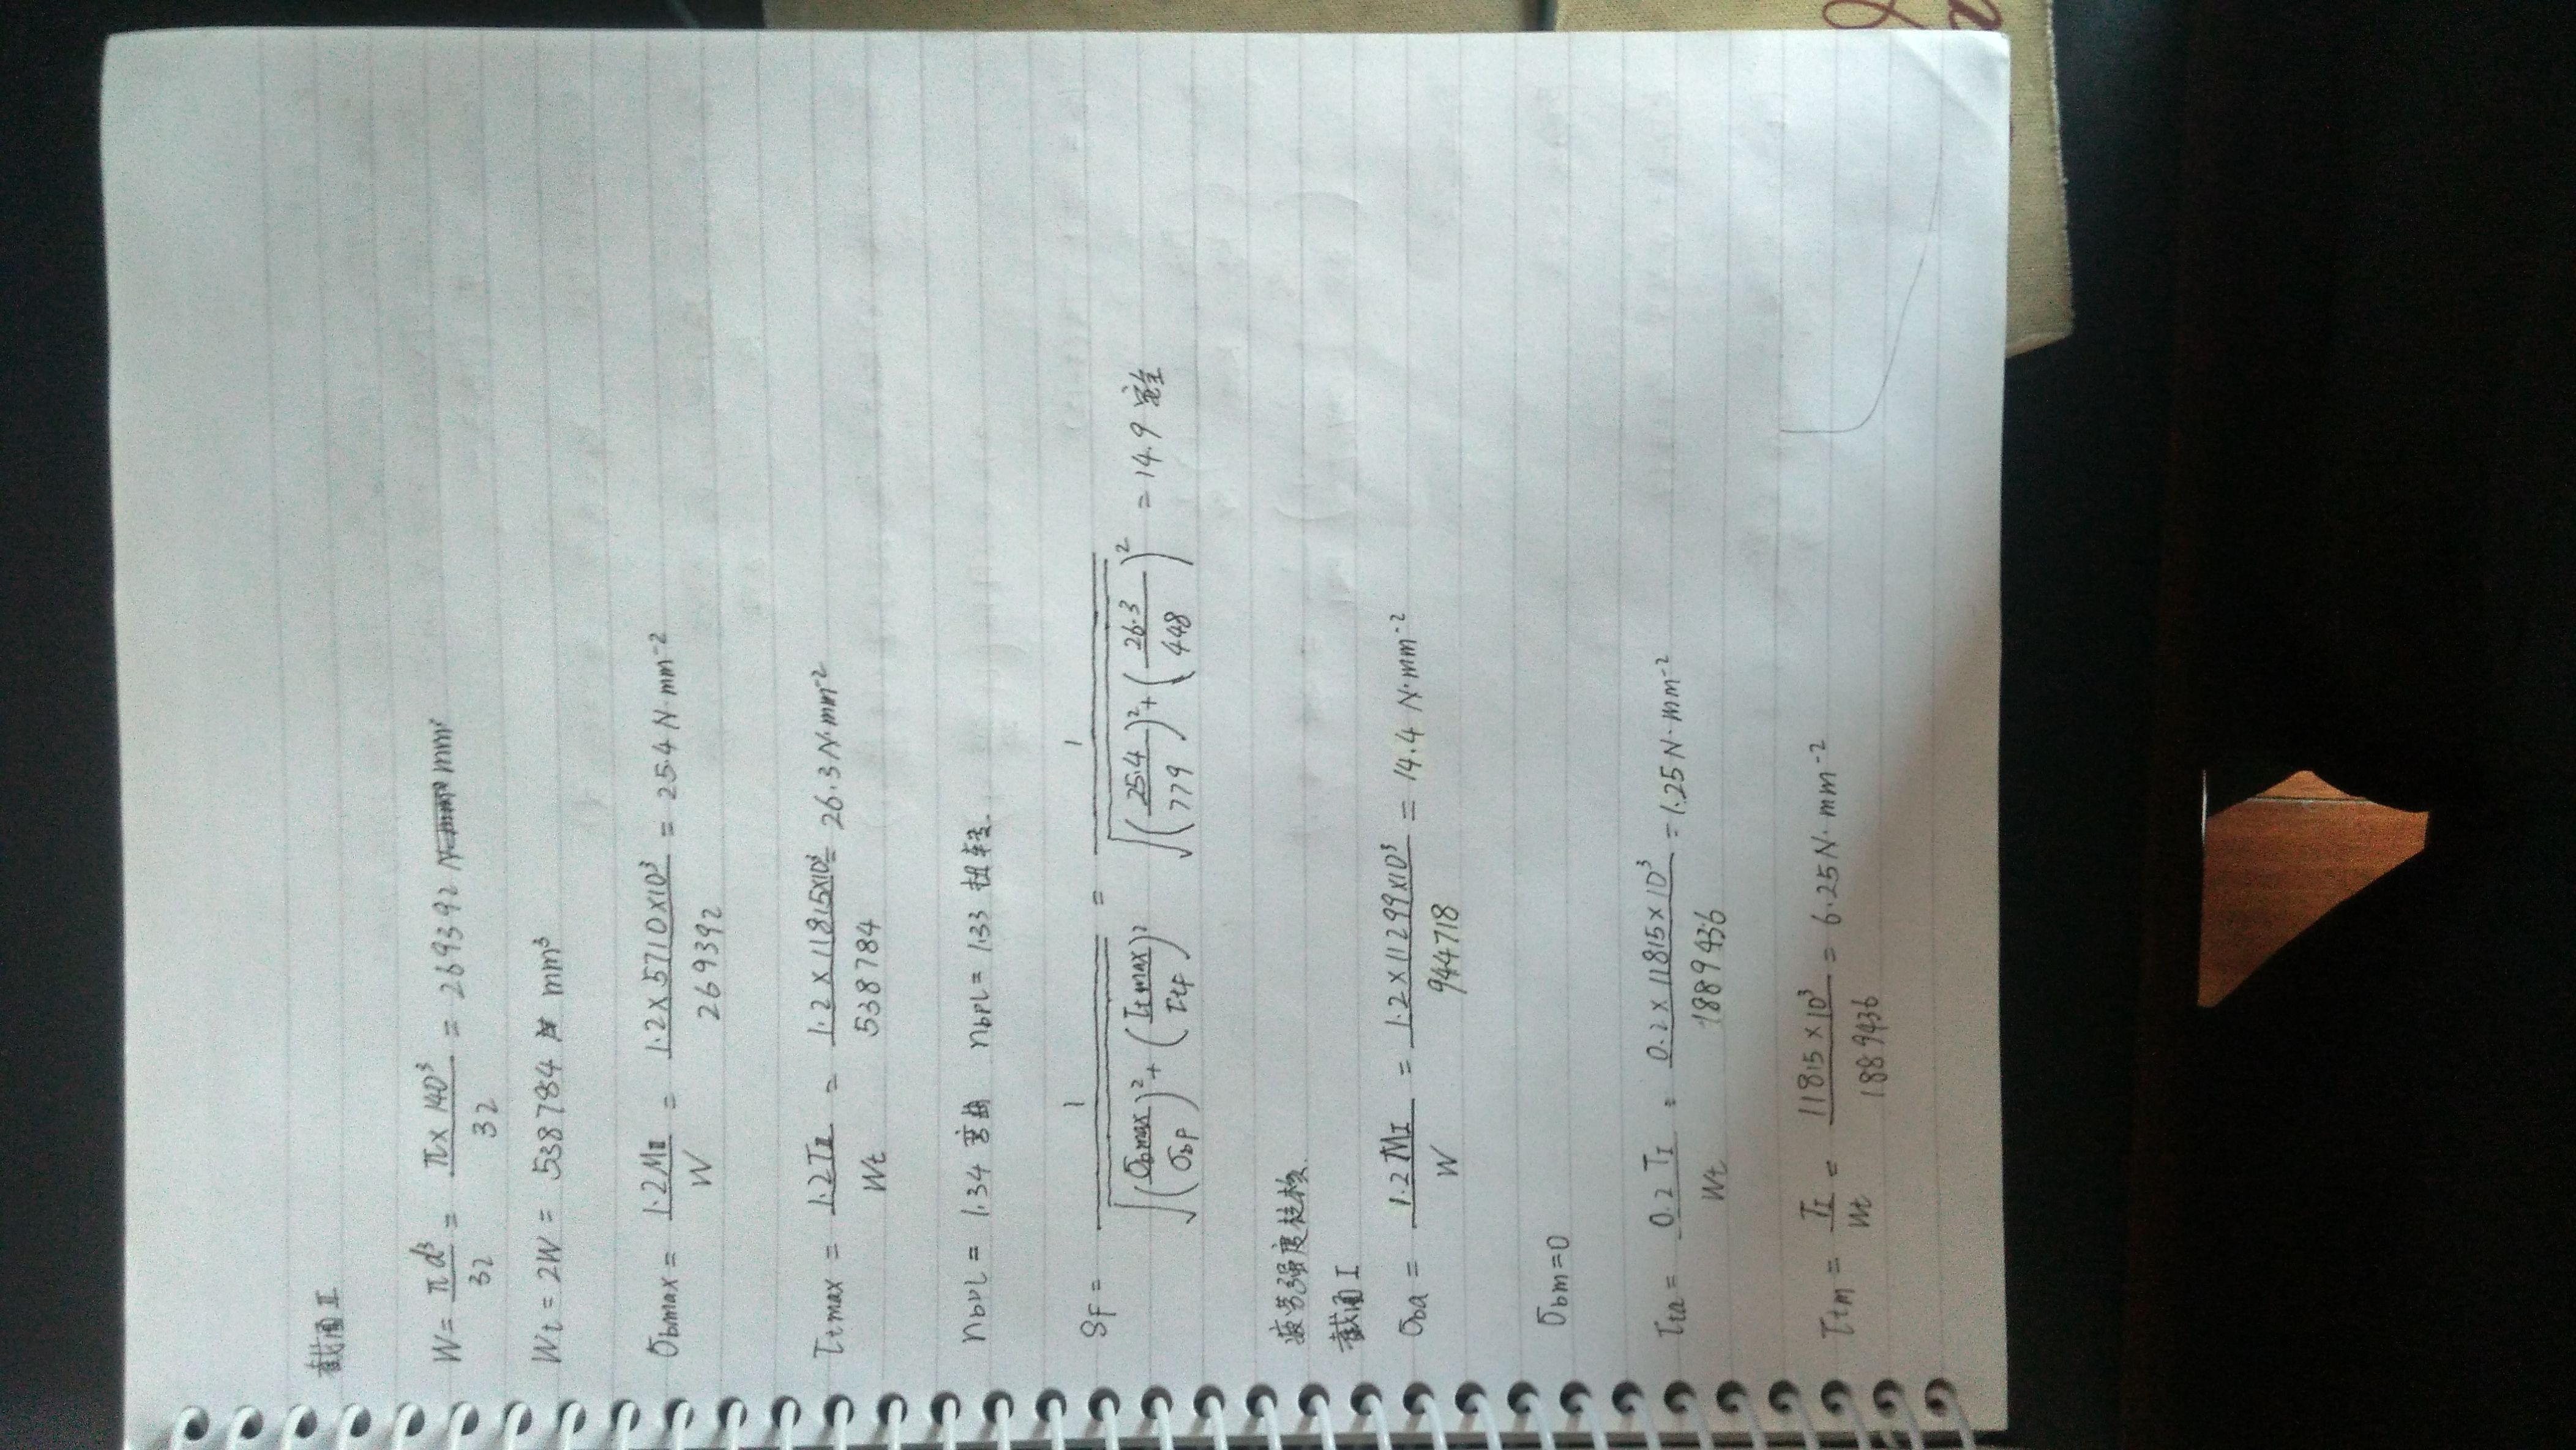 截面Ⅱ
W = πd³/32 = π×140³/32 = 269392 mm³
Wt = 2W = 538784 mm³
σbmax = 1.2MⅡ/W = 1.2×5710×10³/269392 = 25.4 N·mm⁻²
τtmax = 1.2TⅡ/Wt = 1.2×11815×10³/538784 = 26.3 N·mm⁻²
nbpl = 1.34 弯曲 nbpl = 1.33 扭转.
SF = 1/√((σbmax/σbF)²+(τtmax/τtF)²) = 1/√((25.4/779)²+(26.3/448)²) = 14.9 安全
疲劳强度校核.
截面Ⅰ
σba = 1.2MⅠ/W = 1.2×11299×10³/944718 = 14.4 N·mm⁻²
σbm=0
τta = 0.2TⅠ/Wt = 0.2×11815×10³/1889436 = 1.25 N·mm⁻²
τtm = TⅠ/Wt = 11815×10³/1889436 = 6.25 N·mm⁻²